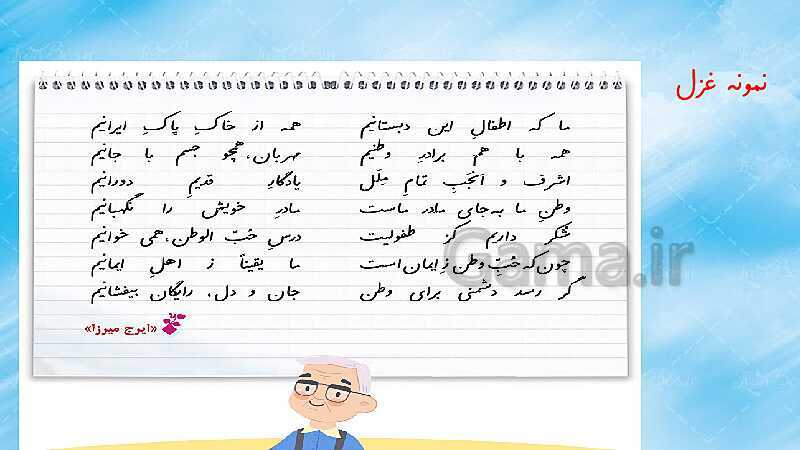 نمونه غزل
ما که اطفالِ این دبستانیم همه از خاکِ پاکِ ایرانیم
همه با هم برادرِ وطنیم مهربان، همچو جسم با جانیم
اشرف و اَنجَبِ تمامِ مِلَل یادگارِ قدیمِ دورانیم
وطنِ ما به‌جای مادر ماست مادرِ خویش را نگهبانیم
شُکر داریم کز طفولیت درسِ حُبّ الوطن، همی خوانیم
چون که حُبِّ وطن زِ ایمان است ما یقیناً ز اهلِ ایمانیم
گر رسد دشمنی برای وطن جان و دل، رایگان بیفشانیم
«ایرج میرزا»
Gama.ir